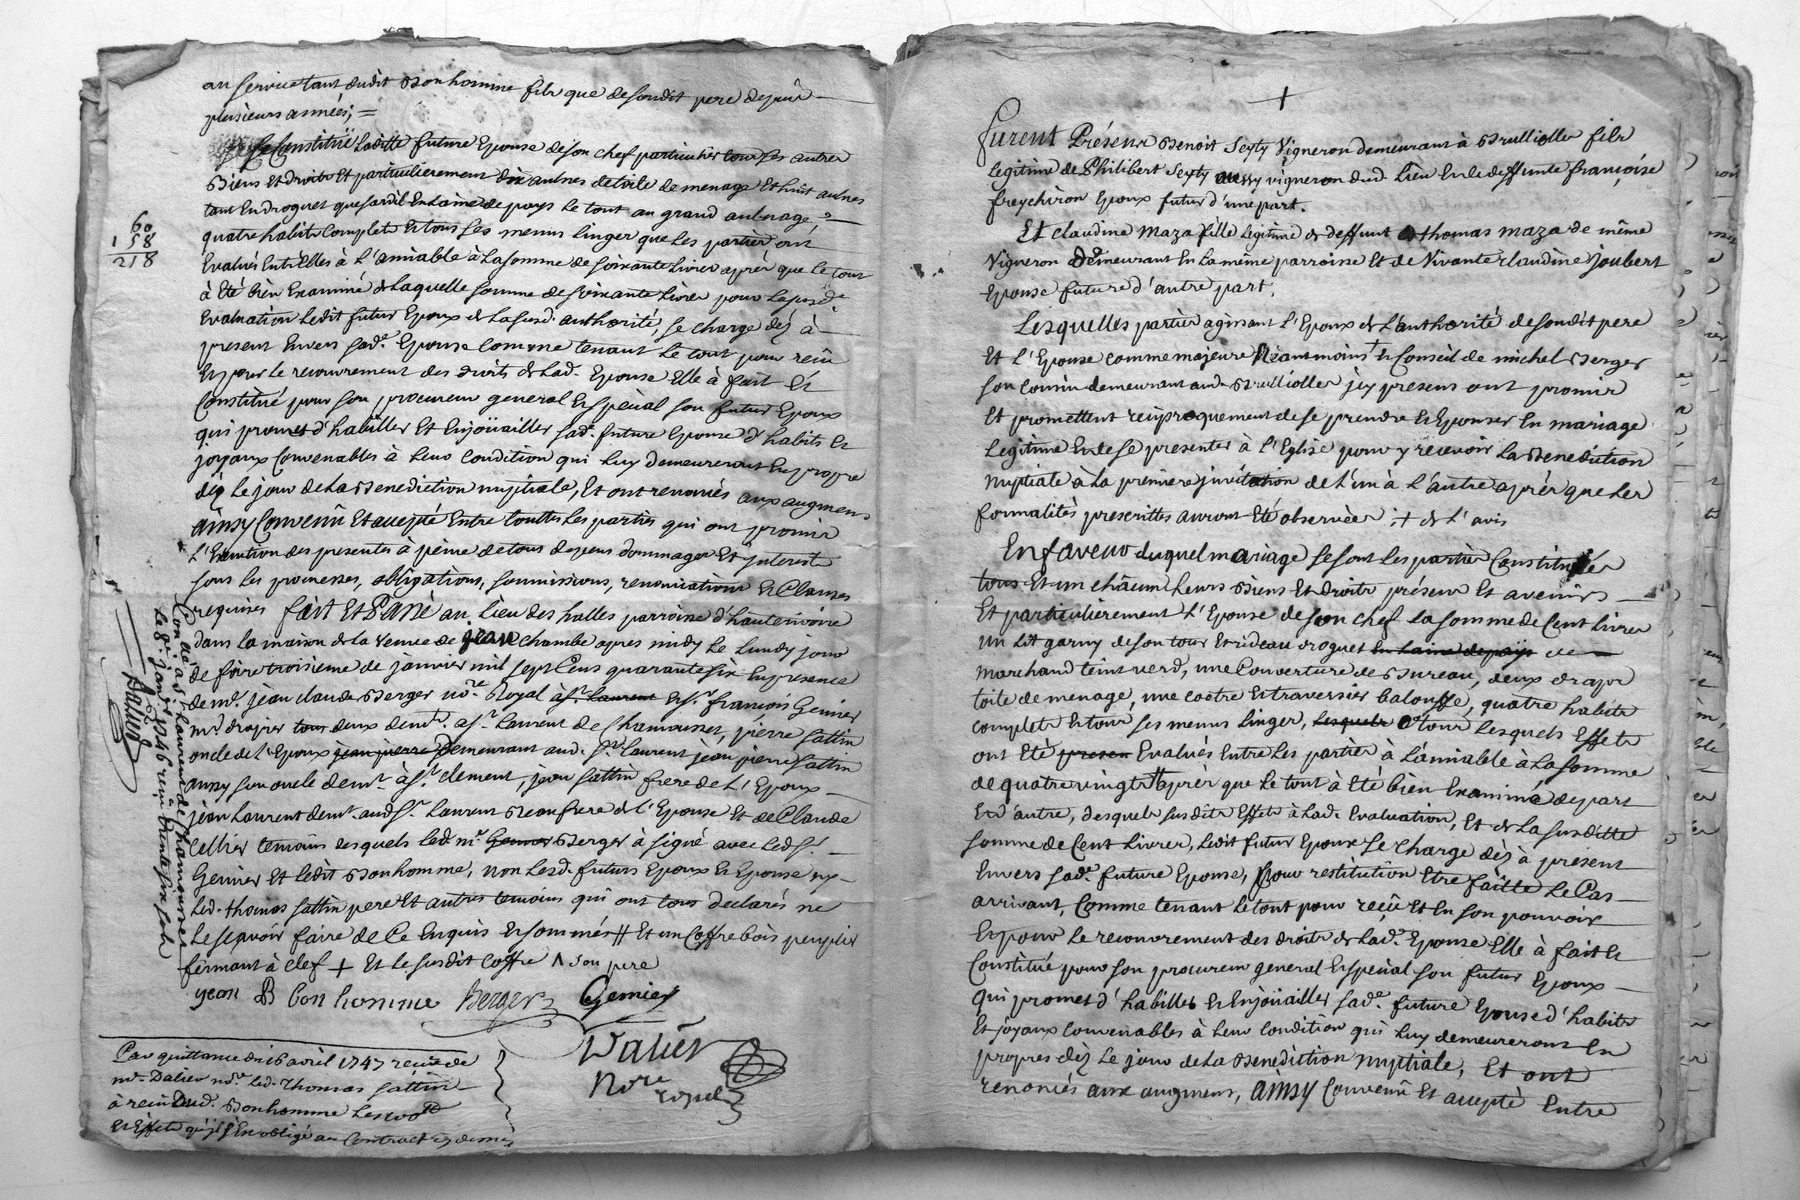 au service tant dudit Bonhomme fils que de sondit pere depuis
plusieurs années; =
se Constitüe Laditte future Epouse de son chef particulier tous ses autres
Biens et droits et particulierement dix aulnes de toile de menage et huit aulnes
tant en droguet que sardil En Laine de pays Le tout au grand aulnage,
quatre habits complets et tous ses menus linges que Les parties ont
Evalués Entr'elles à L'amiable à La somme de soixante Livres après que Le tout
à Eté bien Examiné de Laquelle somme de soixante Livres pour La susd.e
Evaluation Ledit futur Epoux de La susd. authorité, se charge déz à
present Envers sad.e Epouse Comme tenant Le tout pour reçû
Et pour Le recouvrement des droits de Lad. Epouse Elle à fait Et
Constitué pour son procureur general Et special son futur Epoux
qui promet d'habiller Et Enjoüailler sad.e future Epouse d'habits Et
joyaux Convenables à Leur Condition qui Luy demeureront En propre
déz Le jour de La Benediction nuptiale, Et ont renoncés aux augmens
Ainsy Convenû Et accepté Entre touttes Les parties qui ont promis
L'Exécution des presentes à peine de tous depens dommages Et interests
sous Les promesses, obligations, soumissions, renonciations Et Clauses
requises fait Et Passé au Lieu des halles parroisse d'hauterivoire
dans La maison de La Veuve de jean Chambe apres midy Le Lundy jour
de foire troisieme de janvier mil sept Cens quarante six En presence
de m.e jean claude Berger no.re Royal à S.t Laurent Et S.r françois Genier
m.d drapier tous deux dem.ts à S.t Laurent de Chamousset, pierre sattin
oncle de L'Epoux jean pierre Demeurant aud. S.t Laurent jean pierre sattin
aussy son oncle dem.t à S.t Clement, jean sattin frere de L'Epoux
jean Laurent dem.t aud S.t Laurent Beaufrere de L'Epouse Et de Claude
Cellier temoins Lesquels Led. m.e Genier Berger à signé avec Led S.r
Genier Et Ledit Bonhomme, non Lesd. futurs Epoux Et Epouse ny
Led. thomas sattin pere Et autres temoins qui ont tous declarés ne
Le sçavoir faire de Ce Enquis Et sommés # Et un Coffre bois peuplier
fermant à clef + Et Le susdit Coffre ^ son pere
yean B bon homme Berger Genier
Dalier
No.re royal
60
158
218
Con.lé à S.t Laurent de Chamousset
Le 8.e janv.r 1746 reçû trente six sols
Dalier
Par quittance du 16 avril 1747 reçue de
m.e Dalier no.re Led. Thomas sattin
à reçu Dud. Bonhomme Les
Et Effets qu'il s'En obligé au Contract cy dernier
+
Furent Présens Benoit Seyty Vigneron demeurant à Brullioles fils
Legitime de Philibert Seyty aussy vigneron dud. Lieu Et de deffunte françoise
freychiron Epoux futur d'une part.
Et claudine maza fille Legitime de deffunt thomas maza de même
Vigneron Demeurant En La même parroisse Et de Vivante claudine joubert
Epouse future d'autre part.
Lesquelles parties agissant L'Epoux de L'authorité de sondit pere
Et L'Epouse comme majeure Néantmoins + Et Conseil de michel Berger
son Cousin demeurant aud. Brullioles jcy presens ont promis
Et promettent reciproquement de se prendre Et Epouser En mariage
Legitime Et de se presenter à L'Eglise pour y recevoir La Benediction
Nuptiale à La premiere jnvitation de L'un à L'autre après que Les
formalités prescrittes auront Eté observées ; + de L'avis
En faveur duquel mariage se sont Les parties Constituées
tous Et un châcun Leurs Biens Et droits présens Et avenirs
Et particulièrement L'Epouse de son chef La somme de Cent Livres
un Lit garny de son tour Et rideau droguet En Laine de pays de
marchand teint verd, une Couverture de Bureau, deux draps
toile de menage, une coetre Et traversier balouffe, quatre habits
complets Et tous ses menus linges, Lesquels tous Lesquels Effets
ont Eté presen Evalués Entre Les parties à L'amiable à La somme
de quatre vingt tt après que Le tout à Eté bien Examiné de part
Et d'autre, desquels susdits Effets à Lad. Evaluation, Et de La susditte
somme de Cent Livres, Ledit futur Epoux se charge dès à present
Envers sad.e future Epouse, Pour restitution Etre faitte Le Cas
arrivant, Comme tenant Le tout pour reçû Et En son pouvoir
Et pour Le recouvrement des droits de Lad.e Epouse Elle à fait Et
Constitué pour son procureur general Et special son futur Epoux
qui promet d'habiller Et Enjoüailler sad.e future Epouse d'habits
Et joyaux Convenables à Leur Condition qui Luy demeureront En
propres déz Le jour de La Benediction Nuptiale, Et ont
renoncés aux augmens, Ainsy Convenû Et accepté Entre